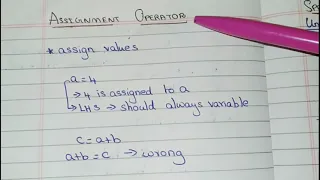 ASSIGNMENT OPERATOR
* assign values
a=4
→ 4 is assigned to a
→ LHS → should always variable
c=a+b
a+b=c → wrong